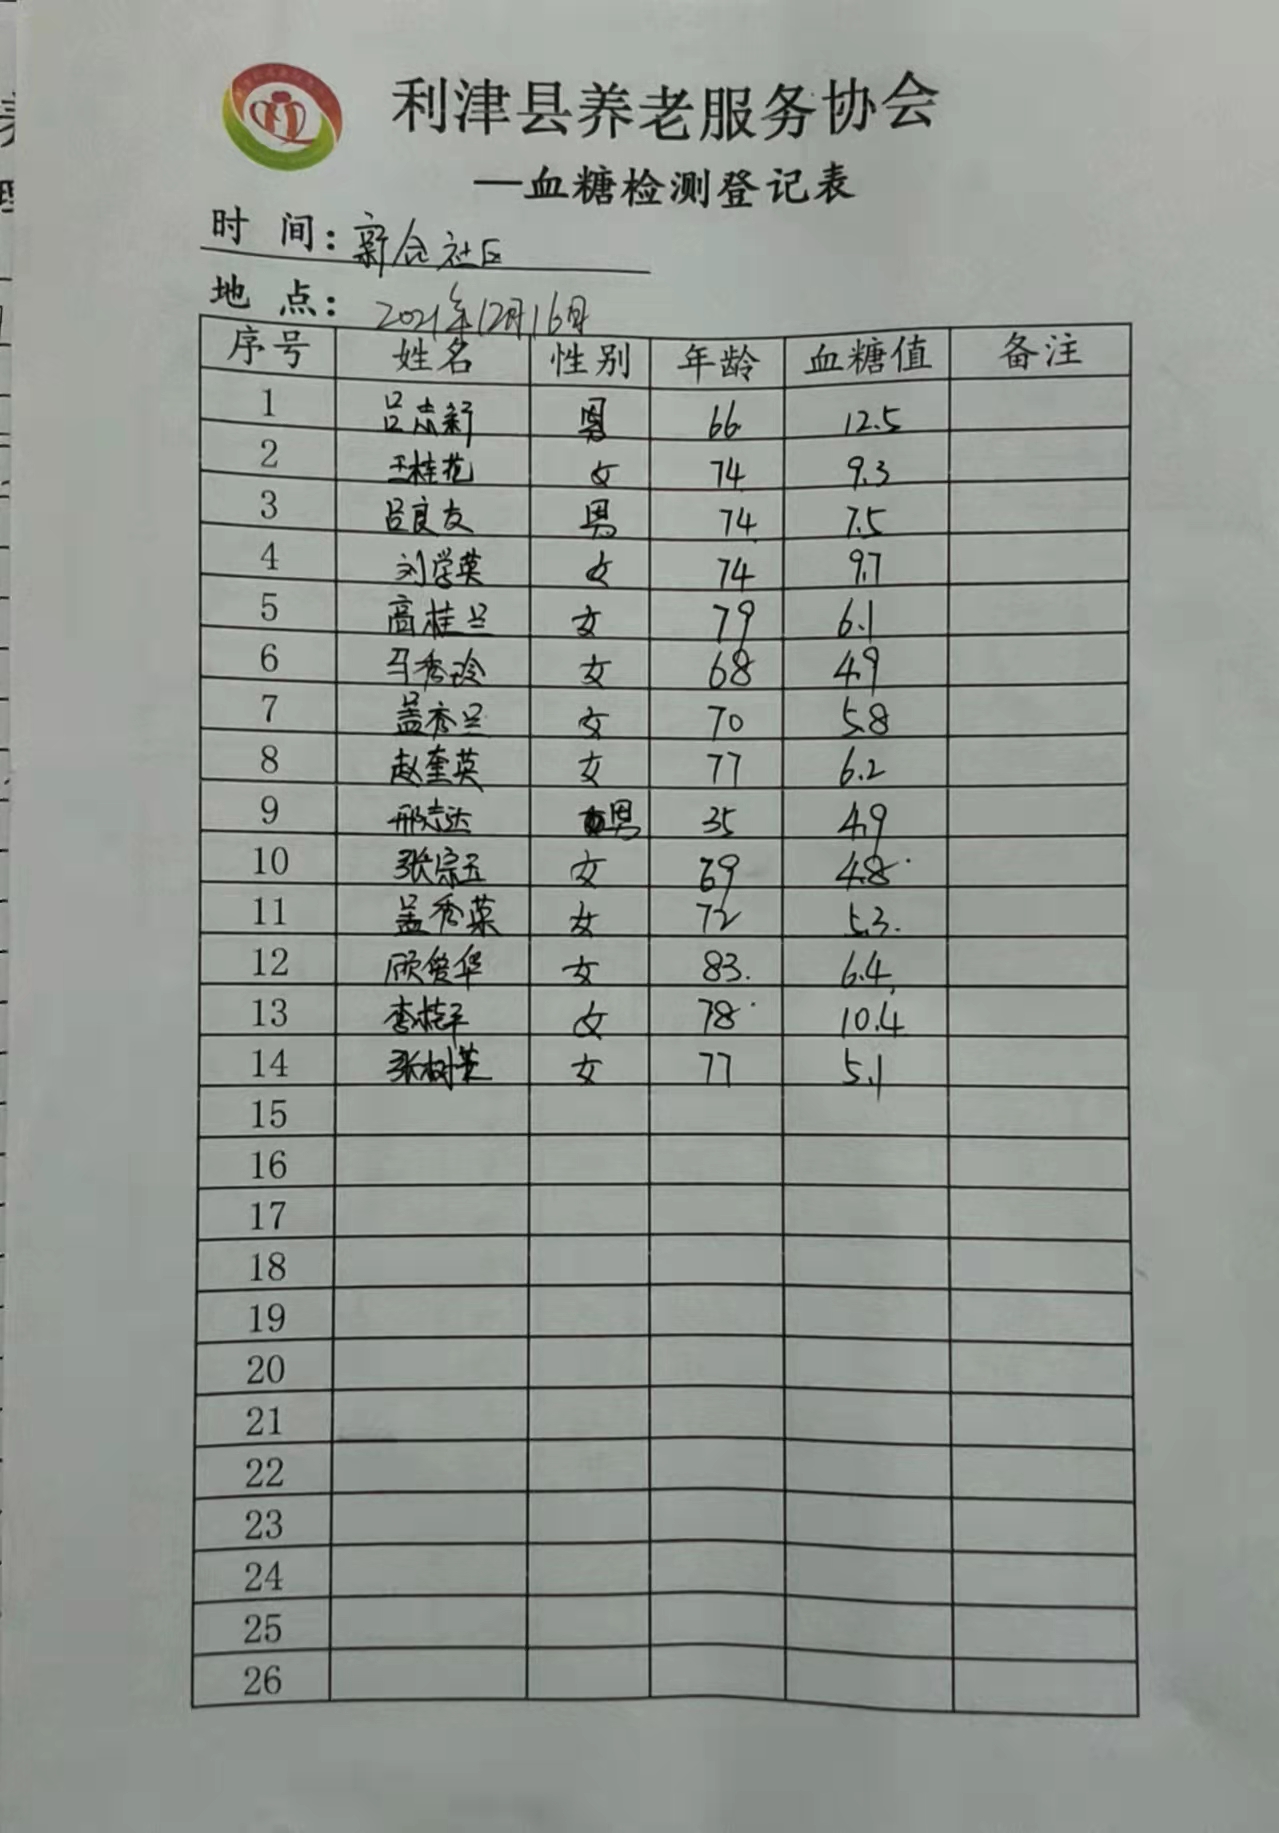 利津县养老服务协会
—血糖检测登记表
时 间：新合社区
地 点：2021年12月16日
序号 姓名 性别 年龄 血糖值 备注
1 吕志新 男 66 12.5
2 王桂花 女 74 9.3
3 吕良友 男 74 7.5
4 刘学英 女 74 9.7
5 高桂兰 女 79 6.1
6 马秀玲 女 68 4.9
7 盖秀兰 女 70 5.8
8 赵奎英 女 77 6.2
9 邢志达 男 35 4.9
10 张宗玉 女 69 4.8
11 盖秀菜 女 72 5.3.
12 顾俊华 女 83. 6.4
13 李桂平 女 78 10.4
14 张树英 女 77 5.1
15
16
17
18
19
20
21
22
23
24
25
26